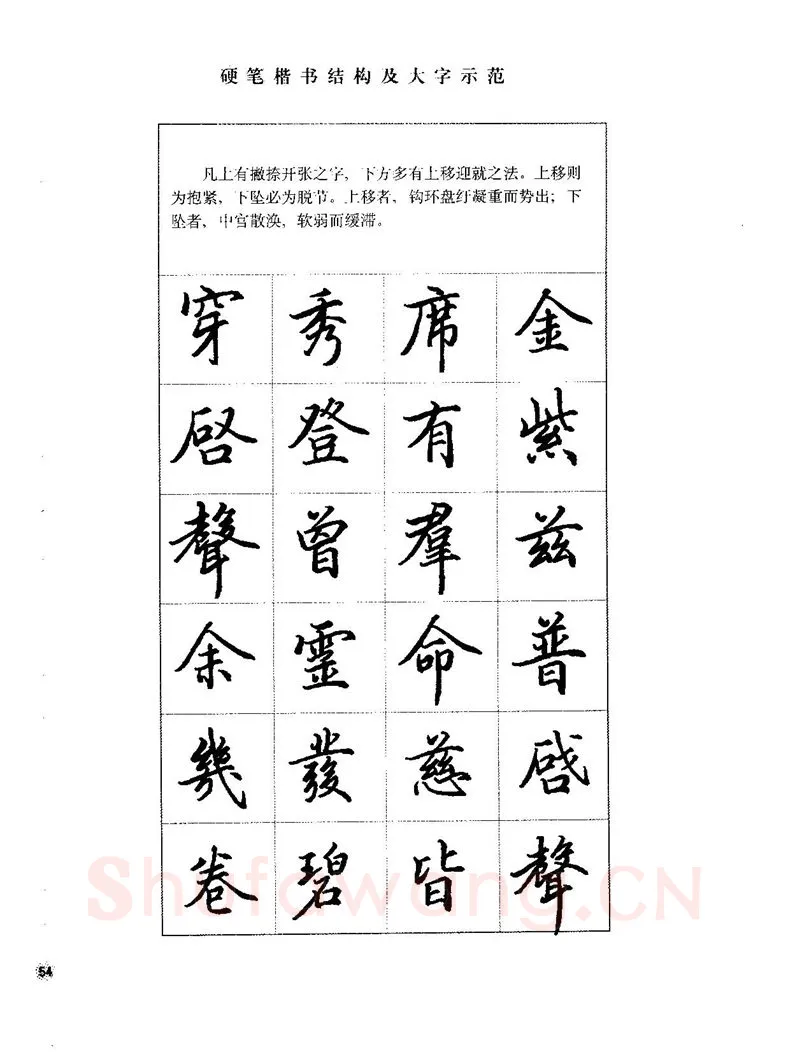 硬笔楷书结构及大字示范
凡上有撇捺开张之字，下方多有上移迎就之法。上移则
为抱紧，下坠必为脱节。上移者，钩环盘纡凝重而势出；下
坠者，中宫散涣，软弱而缓滞。
穿 秀 席 金
啓 登 有 紫
聲 曾 羣 兹
余 靈 命 普
幾 發 慈 啓
卷 碧 皆 聲
Shufawang.CN
54